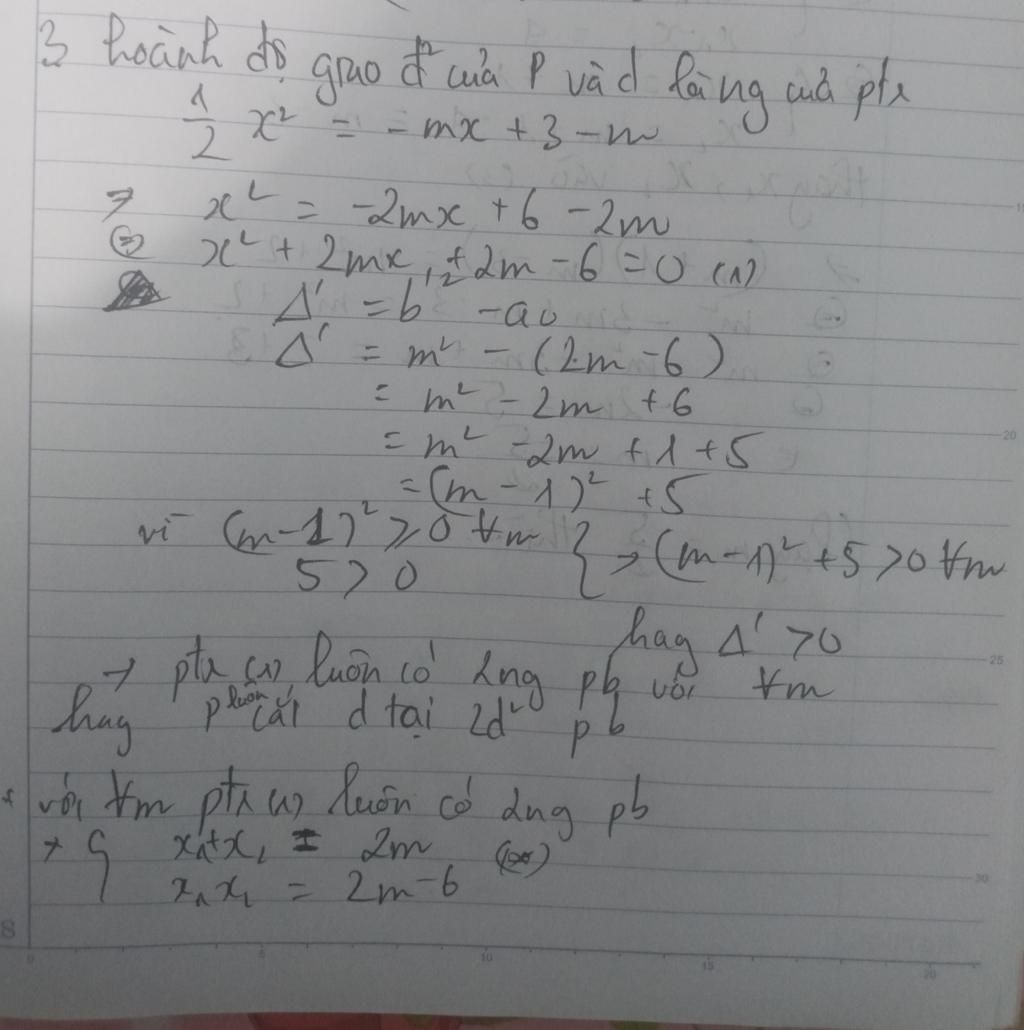 3 hoành độ giao đ² của P và d là ng của ptr
1/2 x² = -mx + 3 - m
→ x² = -2mx + 6 - 2m
⇔ x² + 2mx + 2m - 6 = 0 (1)
Δ' = b'² - ac
Δ' = m² - (2m - 6)
= m² - 2m + 6
= m² - 2m + 1 + 5
= (m - 1)² + 5
vì (m - 1)² ≥ 0 ∀m } → (m - 1)² + 5 > 0 ∀m
5 > 0
hay Δ' > 0
→ ptr (1) luôn có 2 ng pb với ∀m
hay P luôn cắt d tại 2 đ² pb
* với ∀m ptr (1) luôn có 2 ng pb
→ { x₁ + x₂ = 2m
x₁ x₂ = 2m - 6
20
25
30
8
0 5 10 15 20